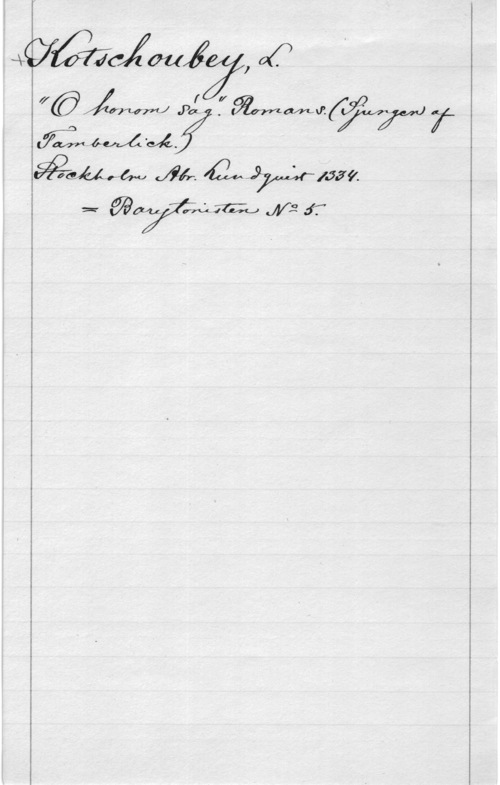 +Kotschoubey, L.
"O honom säg." Romans. (Sjungen af
Tamberlick.)
Stockholm Abr. Lundquist 1334.
= Barytonisten No 5.